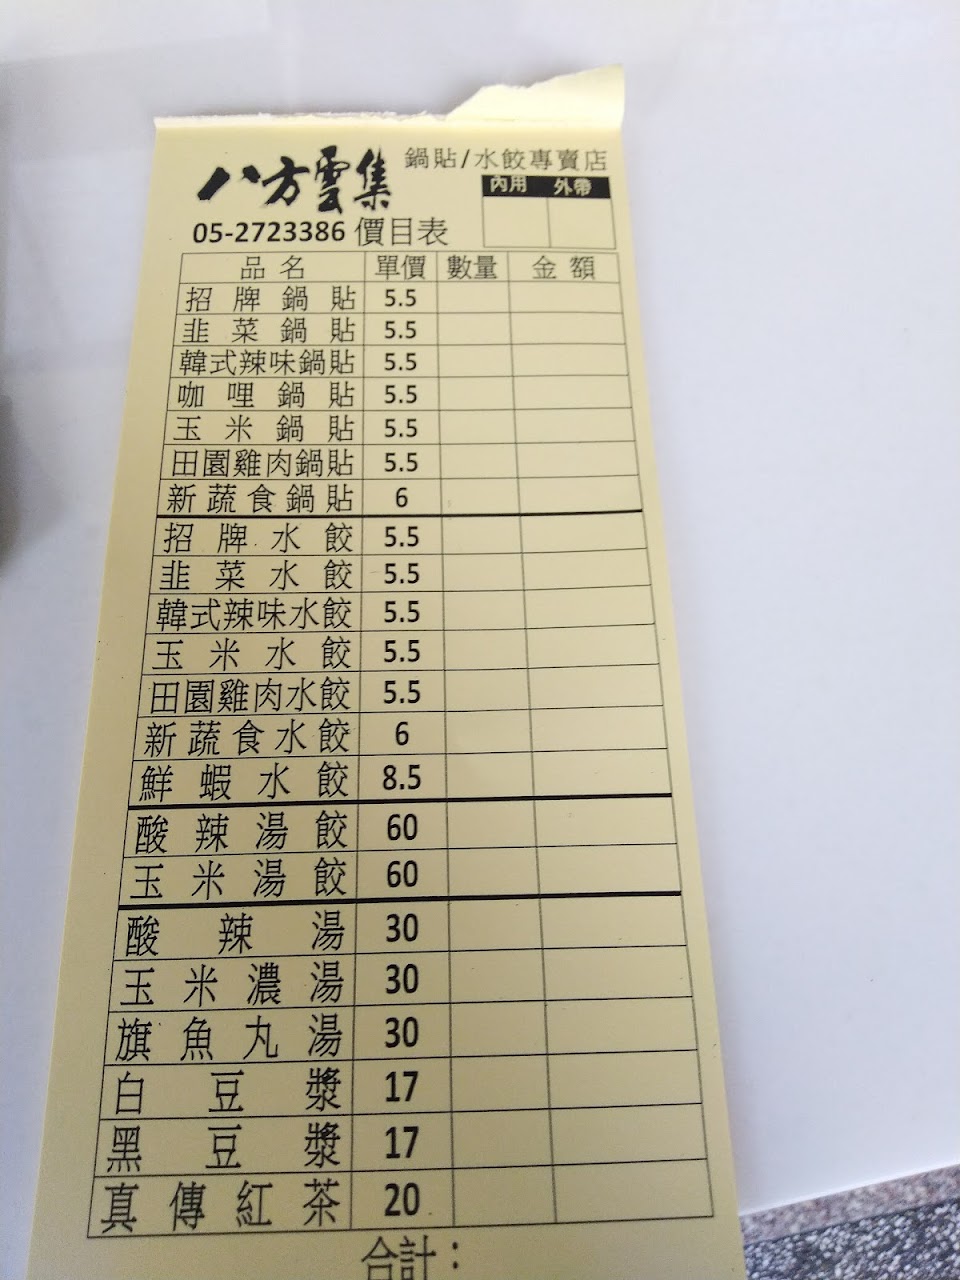 八方雲集 鍋貼/水餃專賣店
內用 外帶
05-2723386 價目表
品名 單價 數量 金額
招牌鍋貼 5.5
韭菜鍋貼 5.5
韓式辣味鍋貼 5.5
咖哩鍋貼 5.5
玉米鍋貼 5.5
田園雞肉鍋貼 5.5
新蔬食鍋貼 6
招牌水餃 5.5
韭菜水餃 5.5
韓式辣味水餃 5.5
玉米水餃 5.5
田園雞肉水餃 5.5
新蔬食水餃 6
鮮蝦水餃 8.5
酸辣湯餃 60
玉米湯餃 60
酸辣湯 30
玉米濃湯 30
旗魚丸湯 30
白豆漿 17
黑豆漿 17
真傳紅茶 20
合計：